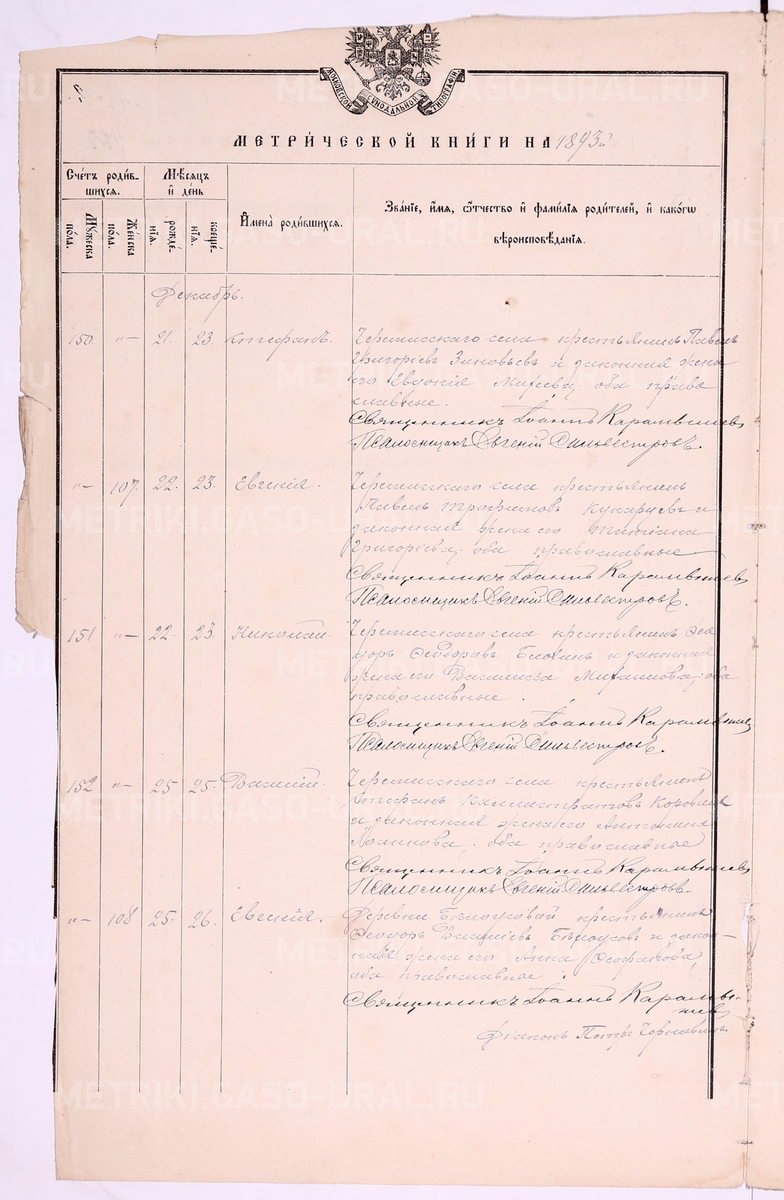 МОСКОВСКОЙ СѴНОДАЛЬНОЙ ТИПОГРАФІИ
МЕТРИ́ЧЕСКОЙ КНИ́ГИ НА 1893 г.
Сче́тъ роди́вшихся.
Мѣ́сяцъ и де́нь
Мꙋ́жеска пола.
Же́нска пола.
рожде́нїѧ.
креще́нїѧ.
Имена̀ роди́вшихсѧ.
Зва́нїе, и́мѧ, ѻ́тчество и фами́лїѧ роди́телей, и како́гѡ
вѣроисповѣ́данїѧ.
Декабрь.
150. "– 21. 23. Стефанъ. Черемисскаго села крестьянинъ Павелъ
Григоріевъ Зиновьевъ и законная жена
его Евдокія; оба право
славные.
Священникъ Іоаннъ Карамышевъ
Псаломщикъ Евгеній Сильвестровъ.
"– 107. 22. 23. Евгенія. Черемисскаго села крестьянинъ
Павелъ Трофимовъ Кукарцевъ и
законная жена его Татіана
Григоріева; оба православные
Священникъ Іоаннъ Карамышевъ
Псаломщикъ Евгеній Сильвестровъ.
151 "– 22. 23. Николай. Черемисскаго села крестьянинъ Ѳео
доръ Ѳеодоровъ и законная
жена его Василисса; оба
православные.
Священникъ Іоаннъ Карамышевъ
Псаломщикъ Евгеній Сильвестровъ.
152 "– 25 25. Василій. Черемисскаго села крестьянинъ
Стефанъ Каллистратовъ
и законная жена его Антонина
оба православные
Священникъ Іоаннъ Карамышевъ
Псаломщикъ Евгеній Сильвестровъ.
"– 108 25. 26. Евгенія. Деревни Бѣлоусовой крестьянинъ
Ѳеодоръ Васильевъ Бѣлоусовъ и закон-
ная жена его Анна
оба православные.
Священникъ Іоаннъ Карамы-
шевъ
Діаконъ Петръ
METRIKI.GASO-URAL.RU